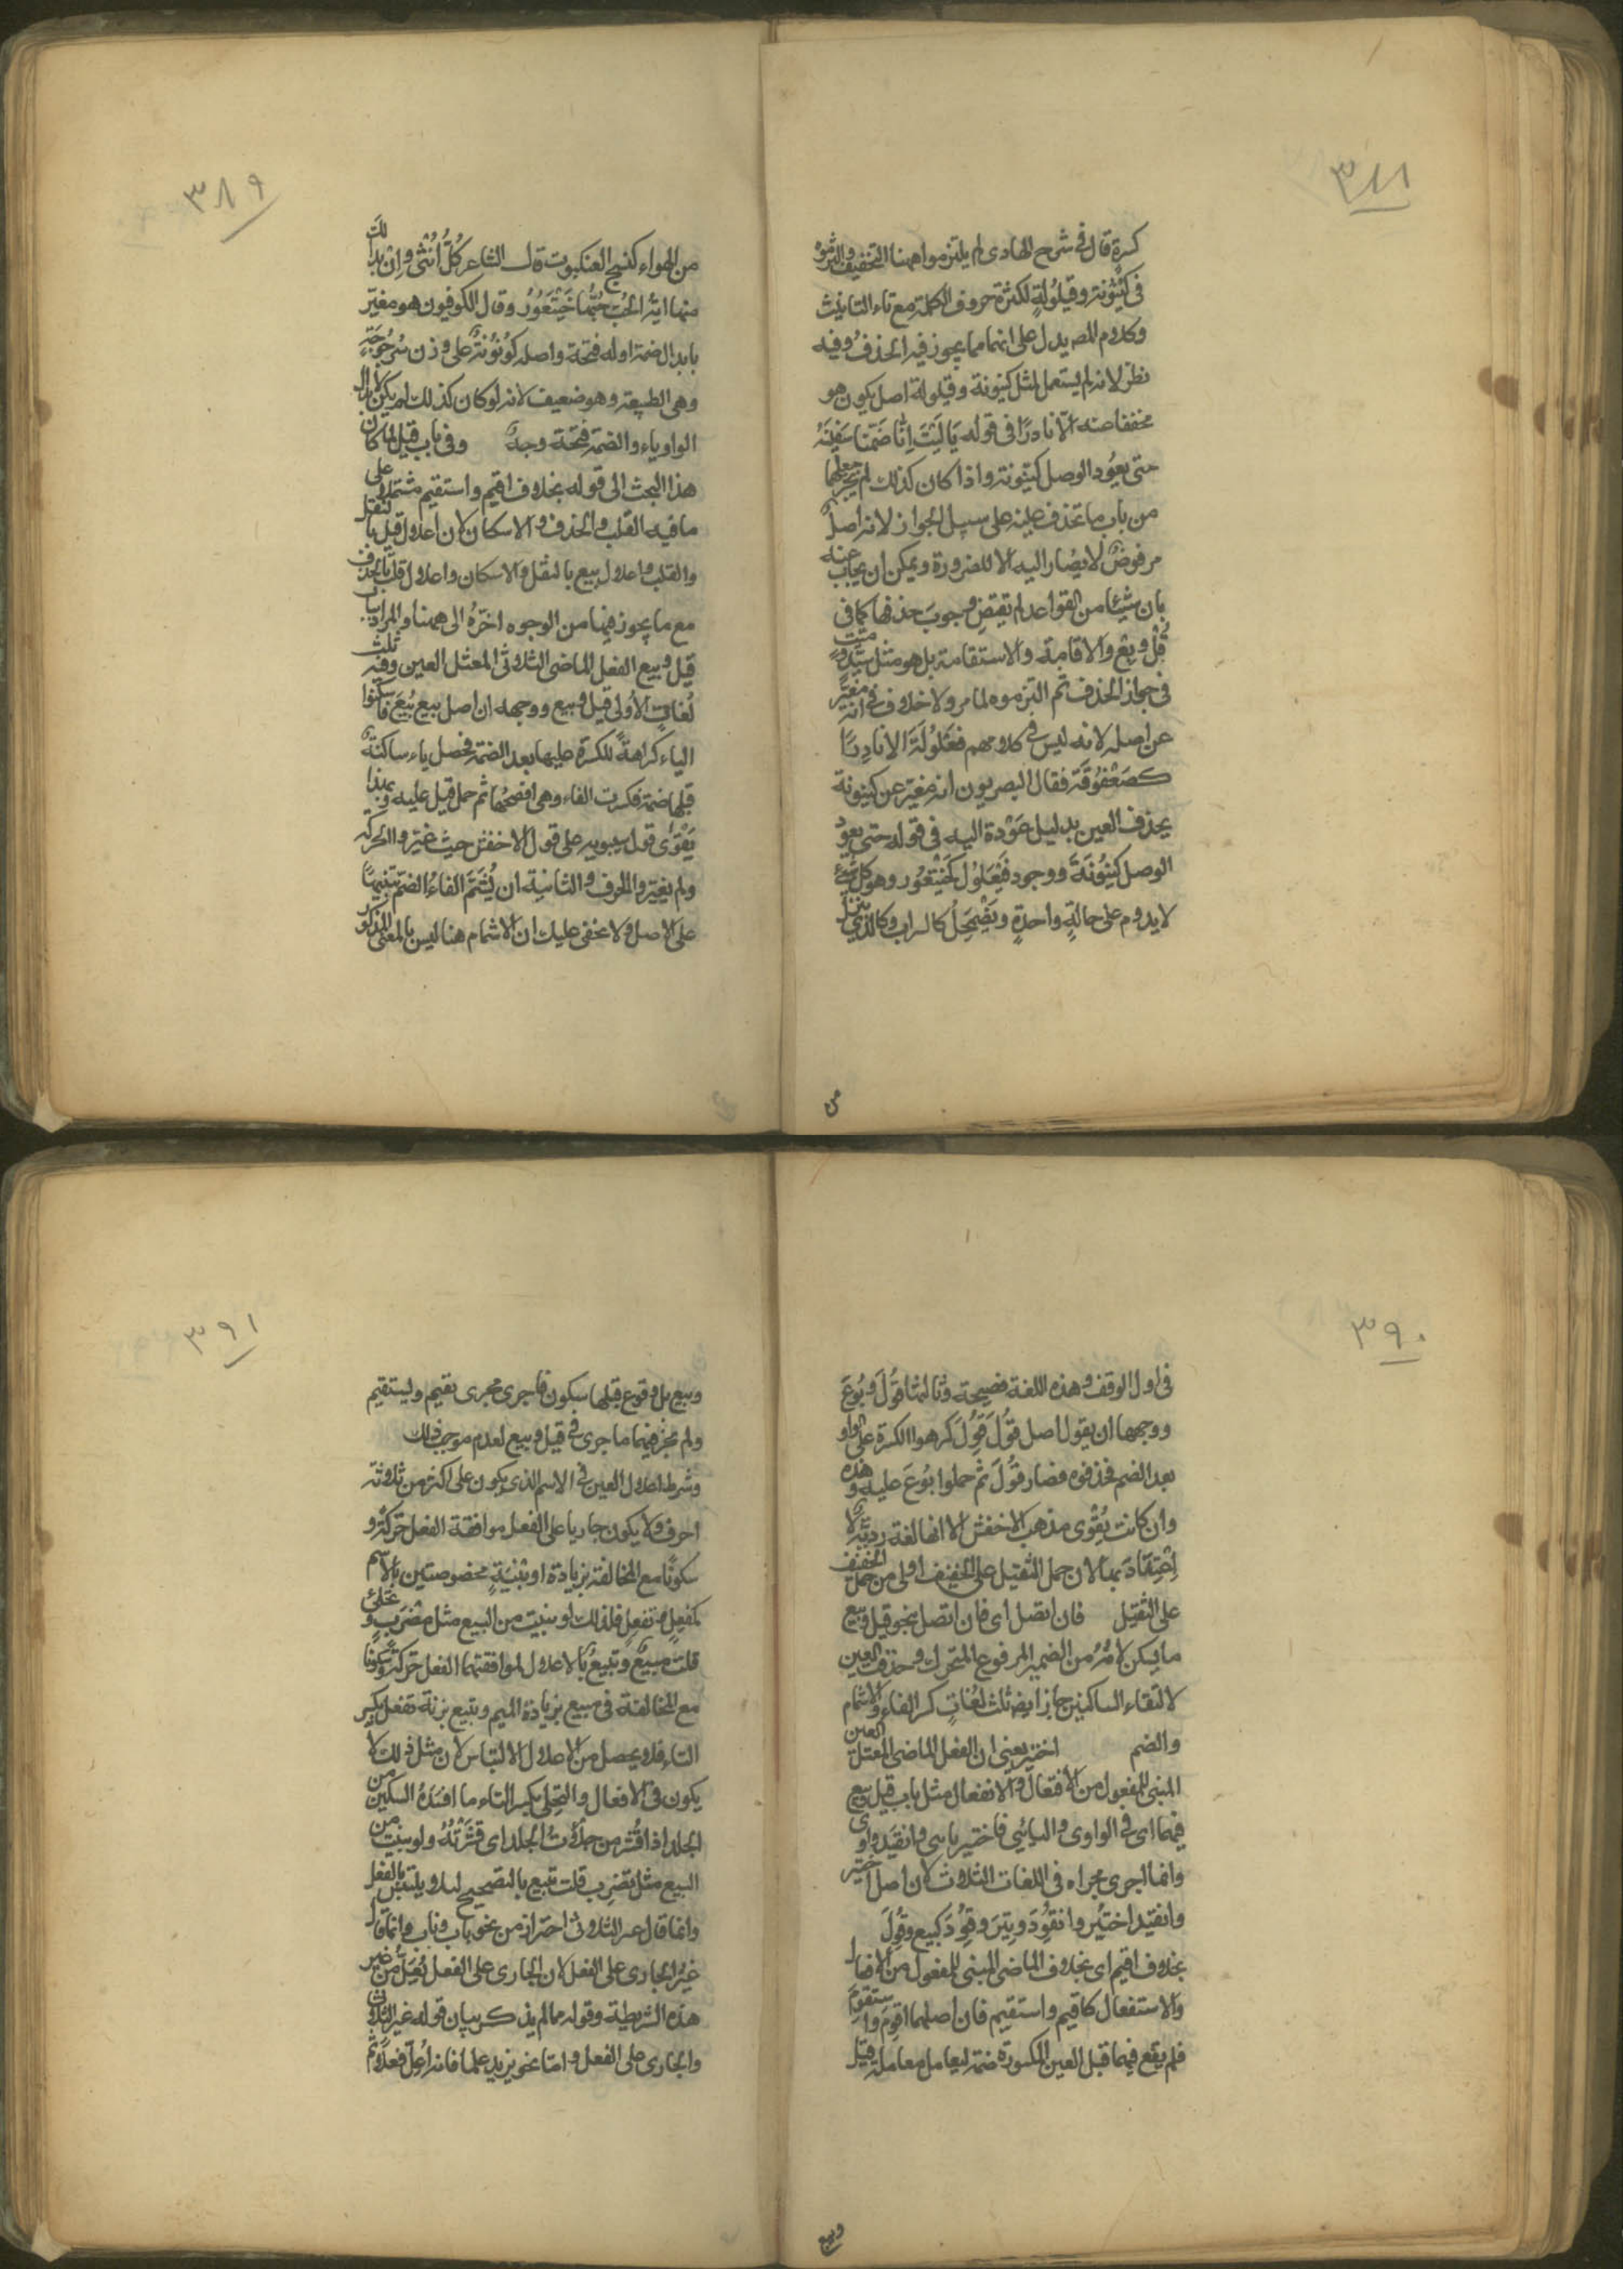 ٣٨٨
كسرة قال فى شرح الهادى لم يلتزموا ههنا التخفيف والتزموه
فى كَيَّنُونة وقيلُولةٍ لكثرة حروف الكلمة مع تاء التانيث
وكلام المص يدل على انهما مما يجوز فيه الحذفُ وفيه
نظر لانه لم يستعمل لمثل كينونة وقيلولة اصل يكون هو
مخففا منه الا نادرًا فى قوله يَا لَيْتَ اِنَّا ضَمَّنَا سَفِيْنَهْ
حتى يعُود الوصل كينونة واذا كان كذلك لم يجز جعلهما
من باب ما تحذف عينه على سبيل الجواز لانه اصلٌ
مرفوضٌ لا يُصَار اليه الا للضرورة ويمكن ان يجاب عنه
بان شيئا من القواعد لم تقتضِ وجوبَ حذفها كما فى
قُلْ وبِعْ والاقامة والاستقامة بل هو مثل سَيّدٍ وميّت
فى جواز الحذف ثم التزموه لما مر ولا خلاف فى انه مغيَّر
عن اصله لانه ليس فى كلامهم فَعْلُولَة الا نادِرًا
كصَعْفُوقَة فقال البصريون انه مغيّر عن كينونة
بحذف العين بدليل عَوْدة اليه فى قوله حتى يعود
الوصل كَيِّنُونَةَ ووجود فَيْعَلُوْل كَخَيْتَعُور وهو كل شَيْءٍ
لا يدوم على حالةٍ واحدةٍ ويَضْمَحِلُّ كالسراب وكالذي ينزل
من
٣٨٩
من الهواء كنسج العنكبوت قال الشاعر كُلُّ اُنْثٰى وَاِنْ بَدَا لَكَ
منها ايةُ الحُبّ حُبُّهَا خَيْتَعُوْرُ وقال الكوفيون هو مغيّر
بابدال ضمة اوله فتحة واصله كُوْنُوْنَةٌ على وزن سُرْجُوجَةٍ
وهى الطبيعة وهو ضعيف لانه لو كان كذلك لم يكن لابدال
الواو ياء والضمة فتحة وجهٌ وفى باب قيل لما كان
هذا البحث الى قوله بخلاف اقيم واستقيم مشتملا على
ما فيه القلب والحذف والاسكان لان اعلال قيل بالنقل
والقلب واعلال بيع بالنقل والاسكان واعلال قلت بالحذف
مع ما يجوز فيها من الوجوه اخّرهُ الى ههنا والمراد بباب
قيل وبيع الفعل الماضى الثلاثى المعتل العين وفيه ثلث
لُغاتٍ الاُولى قيل وبيع ووجهه ان اصل بيع بُيِعَ فاسكنوا
الياء كراهةً للكسرة عليها بعد الضمة فحصل ياء ساكنةٌ
قبلها ضمة فكسرت الفاء وهى افصحُها ثم حمل قيل عليه وبهذا
يَقْوٰى قول سيبويه على قول الاخفش حيث غيّروا الحركة
ولم يغيّروا الحرف والثانية ان يُشَمَّ الفاءُ الضمَّ تنبيهًا
على الاصل ولا يخفى عليك ان الاشمام هنا ليس بالمعنى المذكور
٣٩٠
فى اول الوقف وهذه اللغة فصيحة وثالثها قُوْلَ وبُوْعَ
ووجهها ان يقول اصل قُوْلَ قُوِلَ كرهوا الكسرة على الواو
بعد الضم فحذفوه فصار قُوْلَ ثم حملوا بُوْعَ عليه وهذه
وان كانت يُقْوِى مذهب الاخفش الا انها لغة رديّةٌ لا
اعتداد بها لان حمل الثقيل على الخفيف اولى من حمل الخفيف
على الثقيل فان اتصل اى فان اتصل بنحو قيل وبيع
ما يُسكن لامُهُ من الضمير المرفوع المتحرك وحذفت العين
لالتقاء الساكنين جاز ايضا ثلث لُغاتٍ كسر الفاء والاشمام
والضم اختير يعنى ان الفعل الماضى المعتل العين
المبنى للمفعول من الافتعال والانفعال مثل باب قيل وبيع
فيهما اى فى الواوى واليائى فاختير يائى وانقيد واوى
وانما اجرى مجراه فى اللغات الثلاث لان اصل اختير
وانقيد اختُيِر وانقُوِدَ وتِيرَ وقِودَ كبيع وقُوِلَ
بخلاف اقيم اى بخلاف الماضى المبنى للمفعول من الافعال
والاستفعال كاقيم واستقيم فان اصلهما اقوم واستقوم
فلم يقع فيهما قبل العين المكسورة ضمة ليعامل معاملة قيل
وبيع
٣٩١
وبيع بل وقوع قبلها سكون فاجرى مجرى يقيم ويستقيم
ولم يجز فيهما ما جرى فى قيل وبيع لعدم موجب ذلك
وشرط اعلال العين فى الاسم الذى يكون على اكثر من ثلاثة
احرف ولا يكون جاريا على الفعل موافقة الفعل حَركةً و
سكونًا مع المخالفة بزيادة او بِنْيَةٍ مخصوصتين بالاسم
كمَفعِلٍ وتفعلٍ فلذلك لو بنيت من البيع مثل مَضْرِبٍ وتِحْلِئ
قلت مَبِيْعٌ وتِبِيْعٌ بالاعلال لموافقتهما الفعل حركةً وسكونًا
مع المخالفة فى مبيع بزيادة الميم وتبيع بزنة تفعل بكسر
التاء فلا يحصل من الاعلال الالتباس لان مثل ذلك لا
يكون فى الافعال والتِحْلِئ بكسر التاء ما افسَدَهُ السكّين من
الجلد اذا قُشر من حَلَأْتُ الجلد اى قَشَرْتُهُ ولو بنيت من
البيع مثل تَضْرِب قلت تبيع بالتصحيح لئلا يلتبس بالفعل
وانما قال غير الثلاثى احترازا من نحو باب وناب وانما قال
غيرُ الجارى على الفعل لان الجارى على الفعل يُعَلُّ من غير
هذه الشريطة وقوله مما لم يذكر بيان قوله غير الثلاثى
والجارى على الفعل وامّا نحو يزيد علما فانه اُعِلَّ فعلا ثم